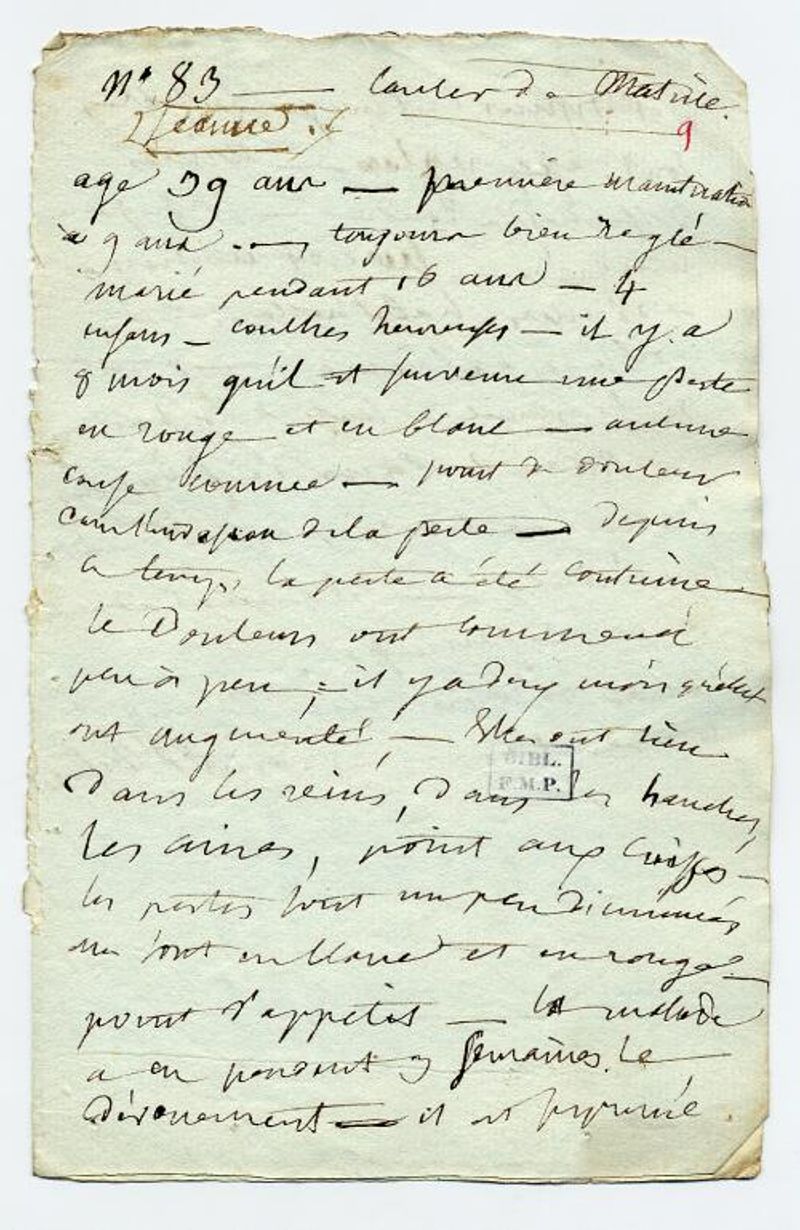 n° 83 — Cancer de Matrice.
9
Jeanne.
age 39 ans — première menstruation
à 9 ans — toujours bien reglé —
marié pendant 16 ans — 4
enfans — couches heureuses — il y a
8 mois qu'il est survenu une perte
en rouge et en blanc — aucune
cause connue — point de douleur
dela perte — depuis
ce temps, la perte a été continue
le Douleurs ont commencé
peu à peu ; il y a deux mois qu'elles
ont augmenté — Elles ont lieu
Dans les reins, Dans les hanches,
les aines, point aux cuisses —
les pertes sont un peu diminuées
sont en blanc et en rouge —
point d'appétit — la malade
a eu pendant 3 semaines le
dévouement — il est supprimé.
BIBL.
F.M.P.